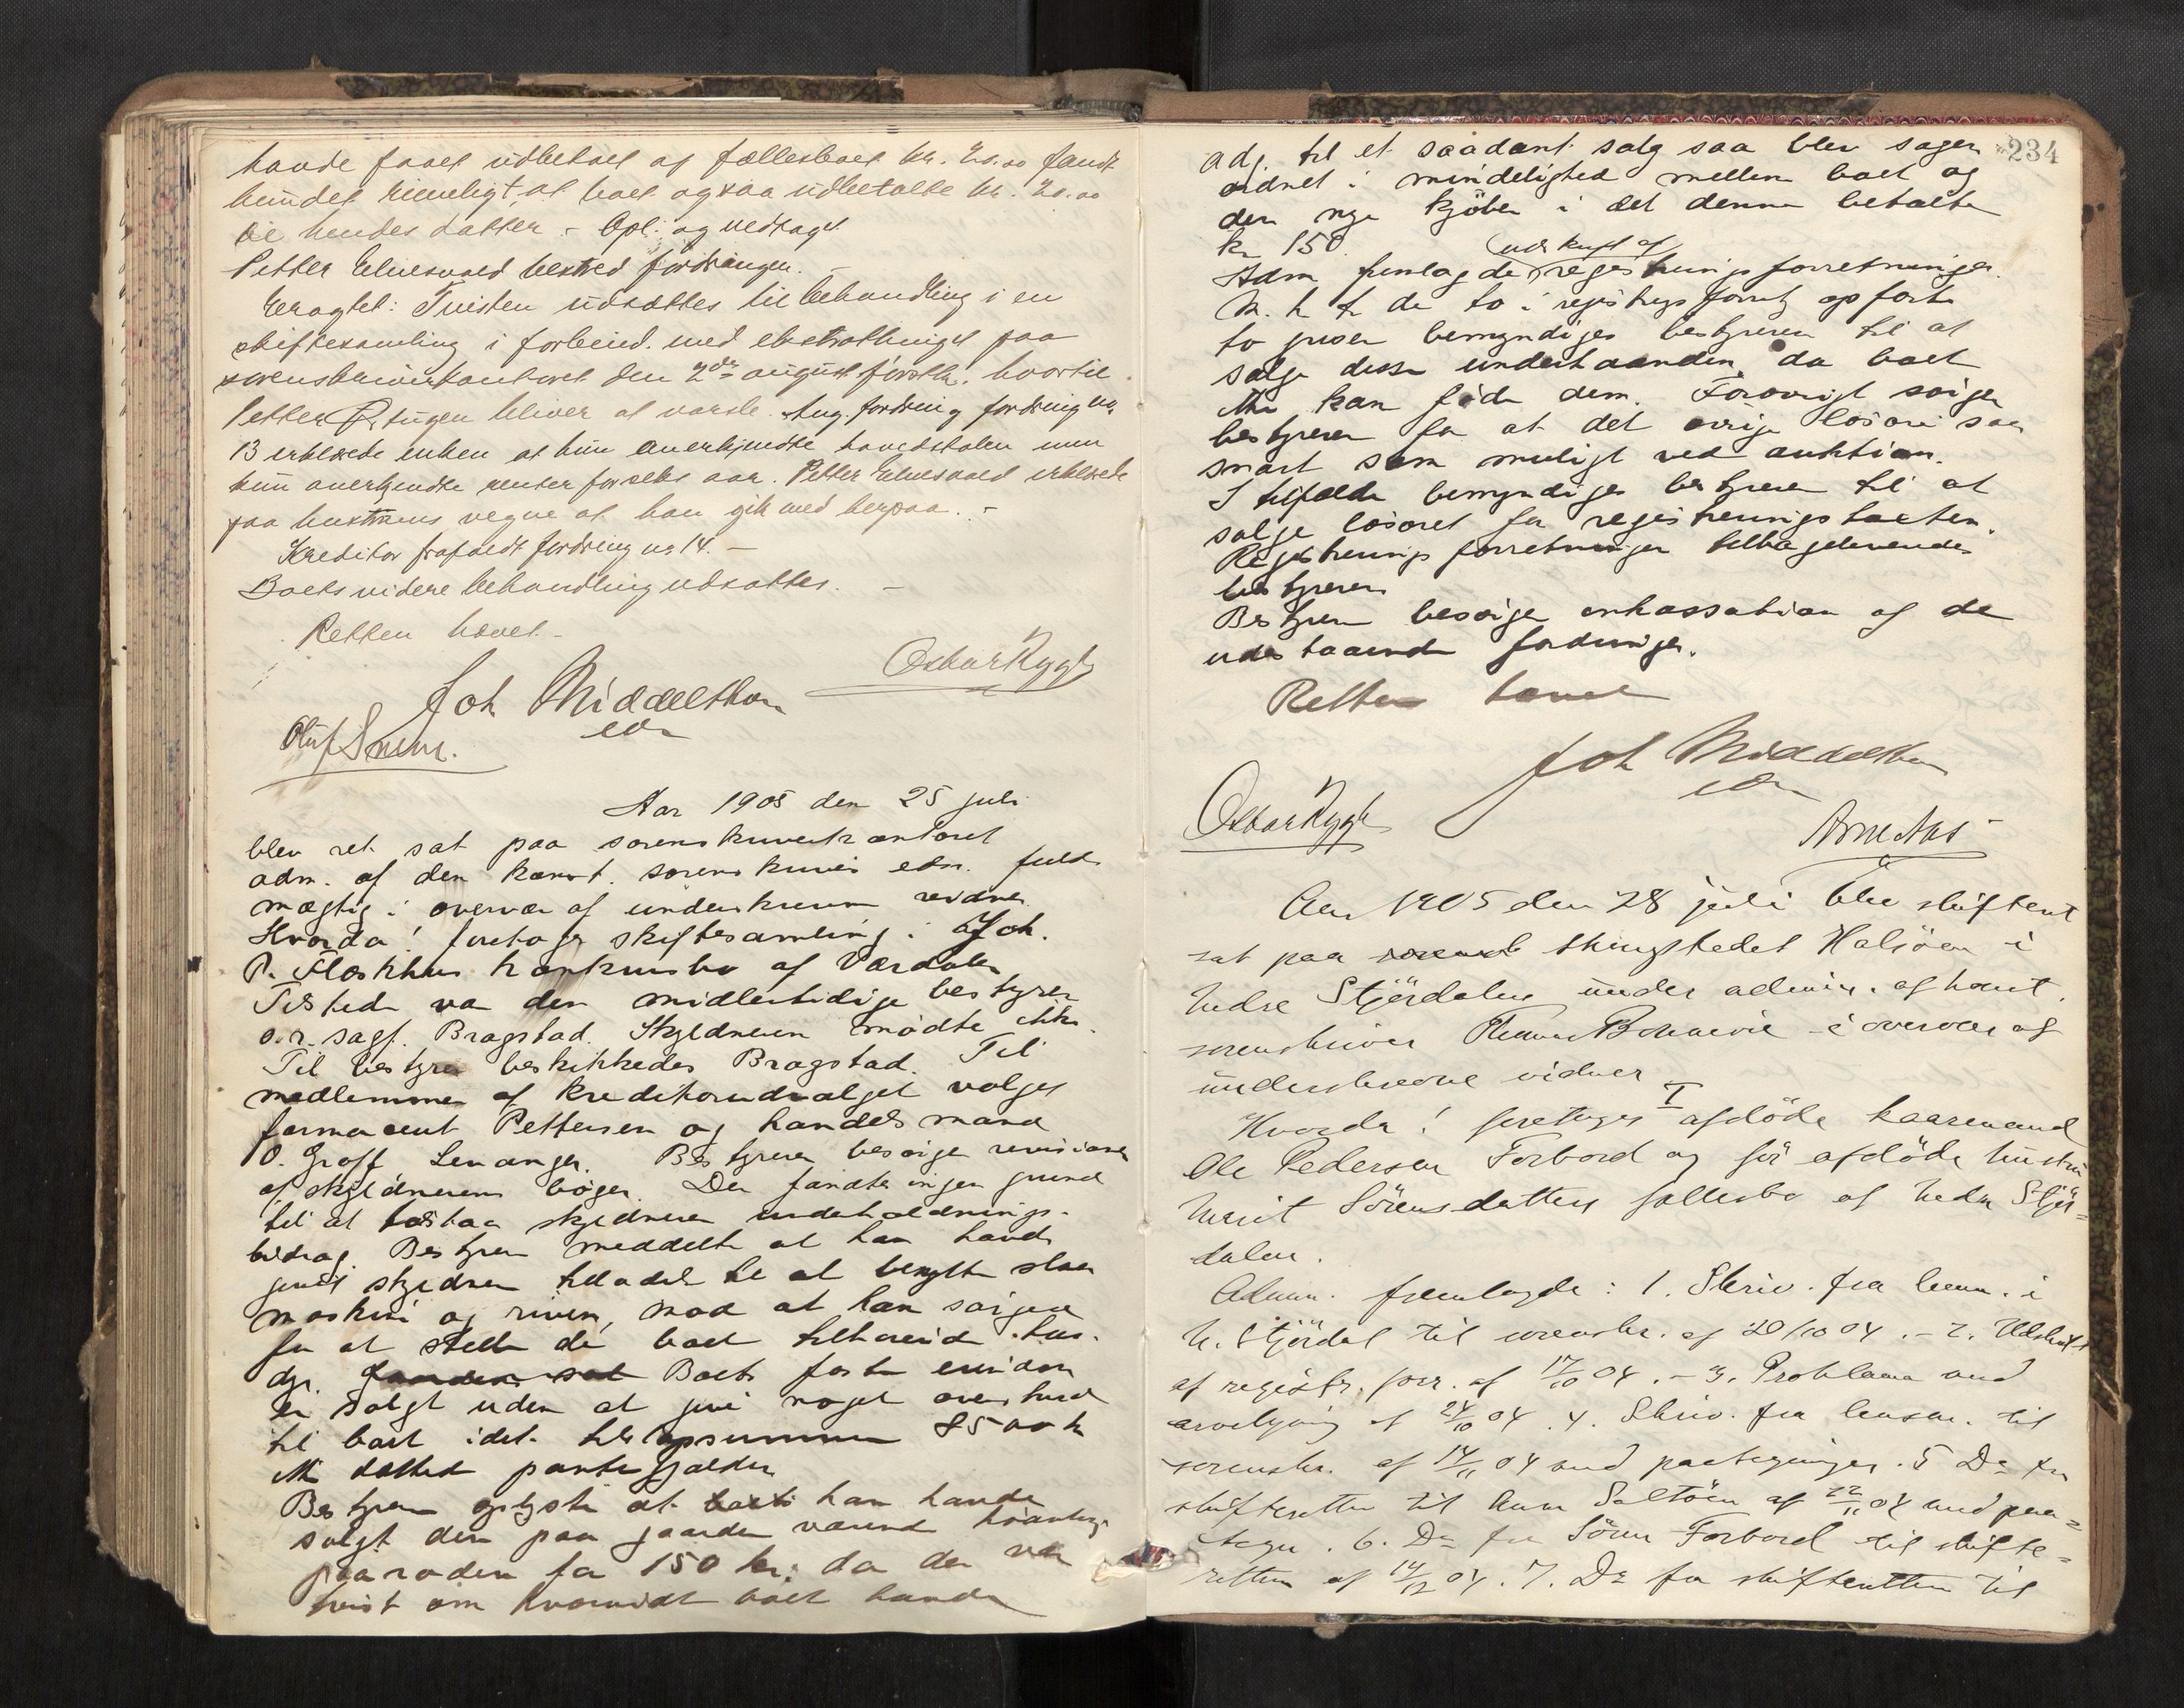 havde faaet udbetalt af fællesboet kr. 20.00 fandt
hun det rimeligt, at boet ogsaa udbetalte kr. 20.00
til hendes datter. - Opl. og vedtaget
Petter bestred fordringen. -
Eragtet: Tvisten udsættes til behandling i en
skiftesamling i forbind. med ekstrathinget paa
sorenskriverkontoret den 2den august førstk. hvortil
Petter bliver at varsle. Ang. fordring fordring no.
13 erklærede enken at hun anerkjendte hovedstolen men
kun anerkjendte renter for seks aar. Petter erklærede
paa hustruens vegne at han gik med herpaa. -
Kreditor frafaldt fordring no 14. -
Boets videre behandling udsattes. -
Retten hævet -
Oskar Rygh
Joh Middelthon
edn
Oluf
Aar 1905 den 25 juli
blev ret sat paa sorenskriverkontoret
adm. af den konst. sorenskriver edsv. fuld
mægtig i overvær af underskrevne vidner
Hvorda! foretages skiftesamling i Joh.
P. Floskhus konkursbo af Værdalen
Tilstede var den midlertidige bestyrer
o.r.sagf. Bragstad. Skyldneren mødte ikke.
Til bestyrer beskikkedes Bragstad. Til
medlemmer af kreditorudvalget valges
farmaceut Pettersen og handelsmand
O. Groff, Levanger. Bestyreren besørger revisionen
af skyldnerens bøger. Der fandtes ingen grund
til at tilstaa skyldneren underholdnings-
bidrag. Bestyreren meddelte at han havde
givet skyldneren tilladelse til at benytte slaa
maskin og riven, mod at han sørgede
for at stelle de boet tilhørende hus-
dyr. Gaarden sat Boets faste eiendom
er solgt uden at give noget overskud
til boet idet kjøbesummen 8500 kr
ikke dækked pantegjælden
Bestyreren oplyste at boets han havde
solgt den paa gaarden værende
paa roden for 150 kr. da der var
tvist om hvorvidt boet havde
234
adg. til et saadant salg saa blev sagen
ordnet i mindelighed mellem boet og
den nye kjöber i det denne betalte
kr 150.
udskrift af
Adm fremlagde registreringsforretningen.
M. h t de to i registrgs forretg opførte
to griser bemyndiges bestyreren til at
sælge disse underhaanden, da boet
ikke kan föde dem. Forøvrigt sørger
bestyreren for at det øvrige løsøre saa
snart som muligt ved auktion.
I tilfælde bemyndiges bestyreren til at
sælge løsøret for registreringstaksten.
Registreringsforretningen tilbageleveredes
bestyreren
Bestyreren besørger inkassation af de
udestaaende fordringer.
Retten hævet
Joh Middelthon
edn
Oskar Rygh
Arne Aas
Aar 1905 den 28 juli blev skifteret
sat paa thingstedet Halsöen i
Nedre Stjördalen under admin. af konst.
sorenskriver i overvær af
underskrevne vidner
I
Hvorda! foretages afdöde kaarmand
Ole Pedersen Forbord og før afdöde hustru
Marit Sörensdatters fællesbo af Nedre Stjör=
dalen.
Admn. fremlagde: 1. Skriv. fra lensm. i
N. Stjördal til sorenskr. af 20/10 04. - 2. Udskrift
af registr. forr. af 17/10 04. - 3. Proklama med
af 24/10 04. 4. Skriv. fra lensm. til
sorenskr. af 14/11 04 med paategninger. 5 Do fra
skifteretten til af 22/11 04 med paa=
tegn. 6. Do fra Sören Forbord til skifte=
retten af 14/12 04. 7. Do fra skifteretten til